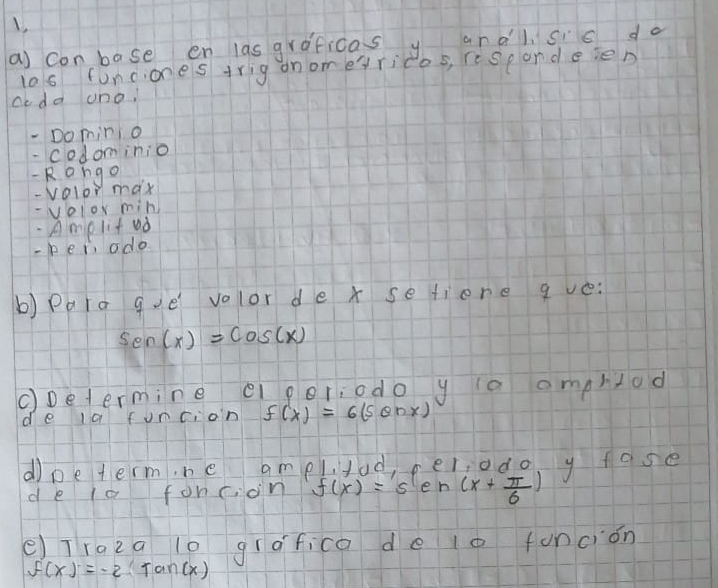 1.
a) con base en las gráficas y análisis de
las funciones trigonometricas, responde en
cada una:
- Dominio
- Codominio
- Rango
- Valor max
- valor min
- Amplitud
- periodo
b) Para qué valor de x se tiene que:
sen(x) = cos(x)
c) Determine el periodo y la amplitud
de la función f(x) = 6(senx)
d) Determine amplitud, periodo y fase
de la función f(x) = sen(x + π/6)
e) Traza la gráfica de la función
f(x) = -2 Tan(x)